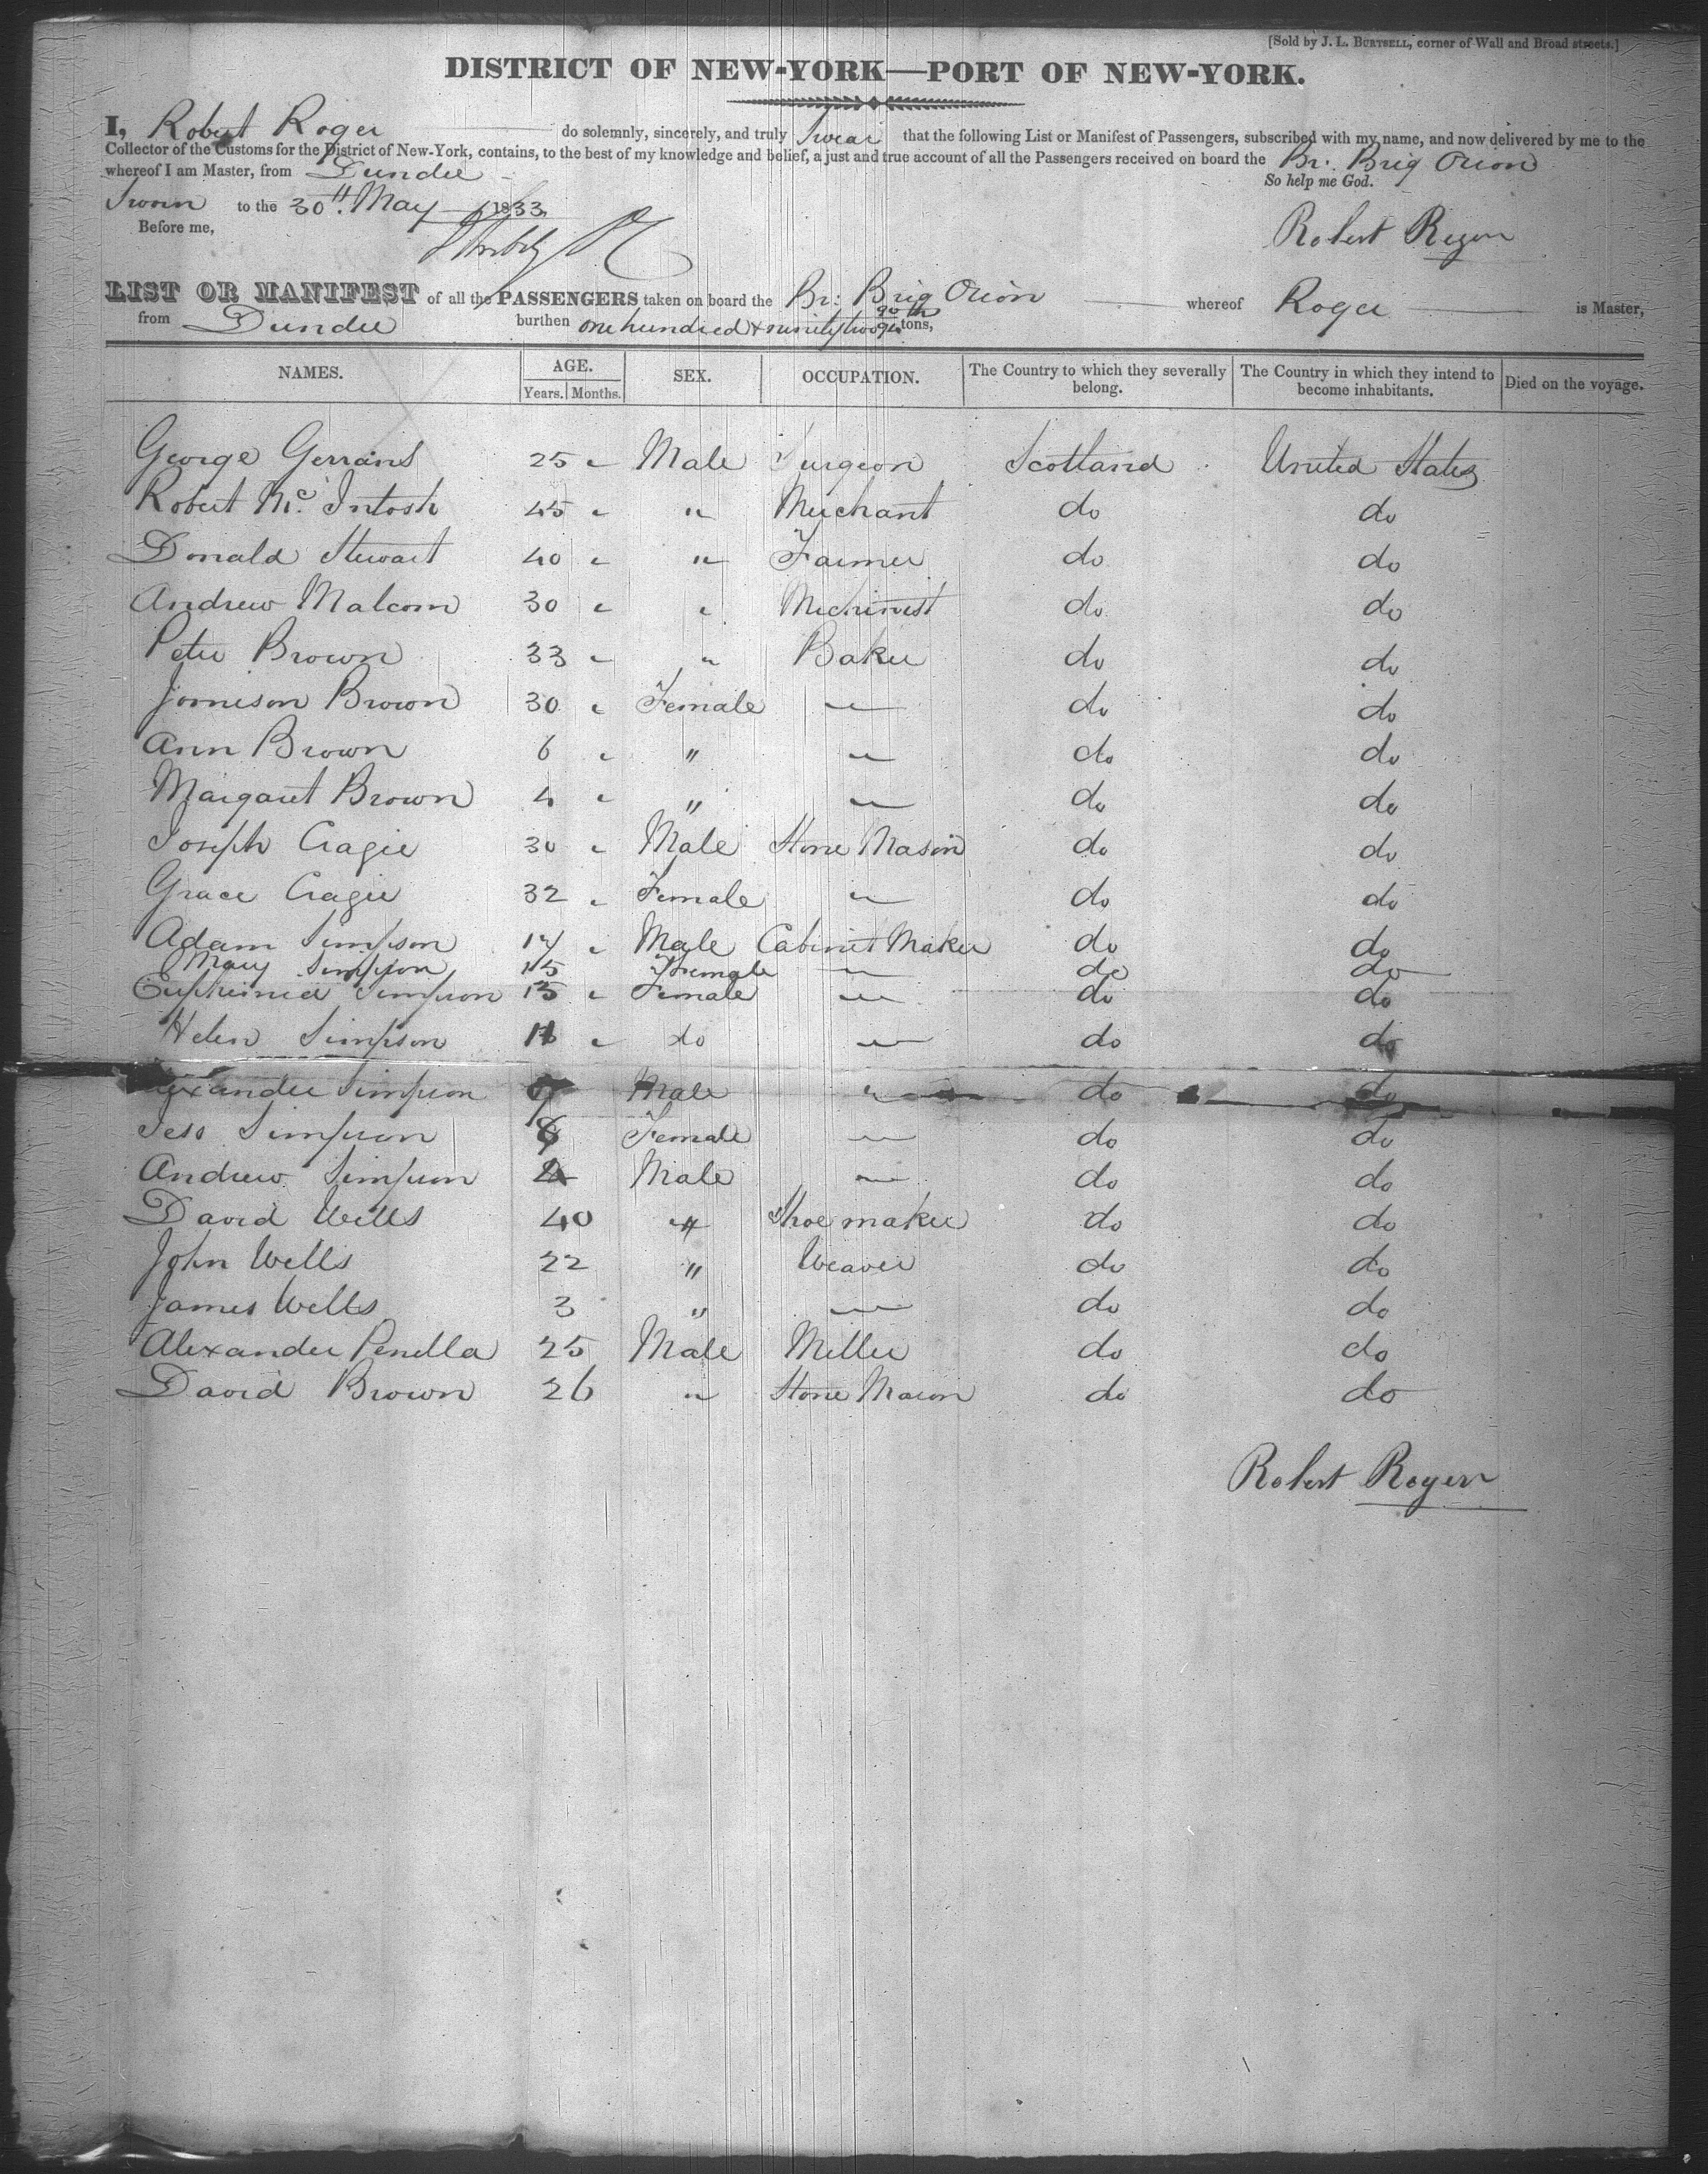 [Sold by J. L. BURTSELL, corner of Wall and Broad streets.]
DISTRICT OF NEW-YORK—PORT OF NEW-YORK.
I, Robert Roger do solemnly, sincerely, and truly Swear that the following List or Manifest of Passengers, subscribed with my name, and now delivered by me to the
Collector of the Customs for the District of New-York, contains, to the best of my knowledge and belief, a just and true account of all the Passengers received on board the Br. Brig Orion
whereof I am Master, from Dundee
So help me God.
Sworn to the 30th May 1833
Before me,
Robert Roger
LIST OR MANIFEST of all the PASSENGERS taken on board the Br: Brig Orion whereof Roger is Master,
from Dundee burthen one hundred & ninety two tons,
NAMES. AGE. SEX. OCCUPATION. The Country to which they severally belong. The Country in which they intend to become inhabitants. Died on the voyage.
Years. Months.
George Gerrans 25 " Male Surgeon Scotland United States
Robert Mc. Intosh 45 " " Merchant do do
Donald Stewart 40 " " Farmer do do
Andrew Malcom 30 " " Mechinist do do
Peter Brown 33 " " Baker do do
Jomeson Brown 30 " Female — do do
Ann Brown 6 " " — do do
Margaret Brown 4 " " — do do
Joseph Cragie 30 " Male Stone Mason do do
Grace Cragie 32 " Female — do do
Adam Simpson 17 " Male Cabinet Maker do do
Mary Simpson 15 Female — do do
Euphemia Simpson 13 " Female — do do
Helen Simpson " do — do do
Alexander Simpson Male " do do
Jess Simpson Female — do do
Andrew Simpson Male — do do
David Wells 40 " Shoe maker do do
John Wells 22 " Weaver do do
James Wells 3 " — do do
Alexander Penella 25 Male Miller do do
David Brown 26 " Stone Mason do do
Robert Roger